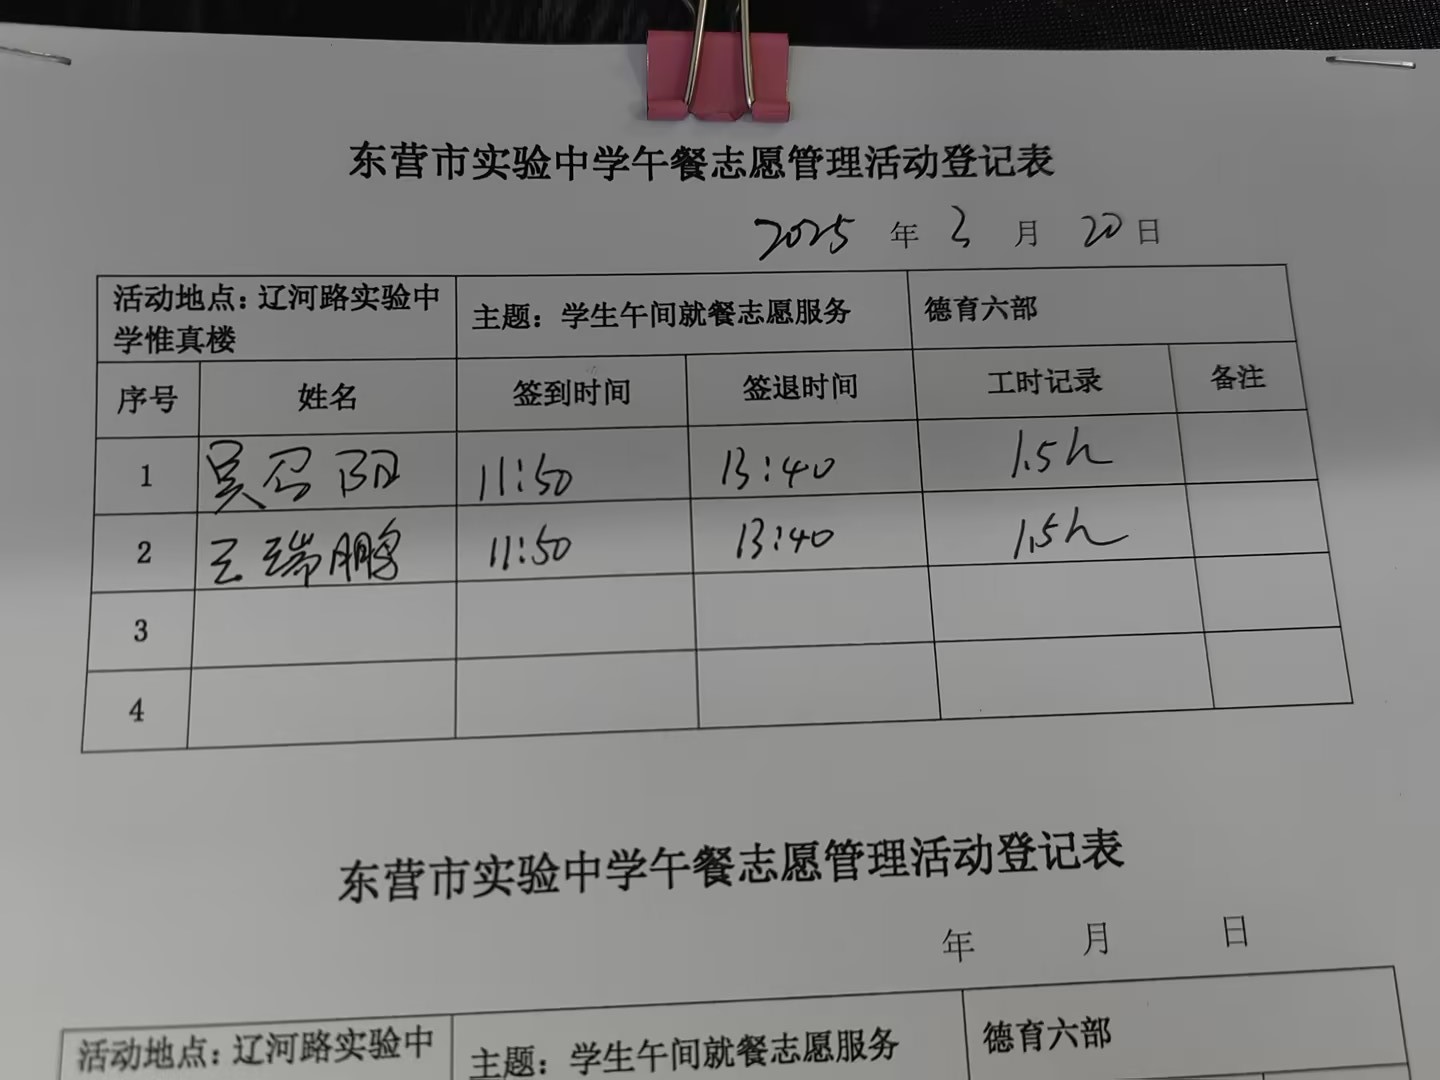 东营市实验中学午餐志愿管理活动登记表
2025 年 3 月 20 日
活动地点：辽河路实验中
学惟真楼
主题：学生午间就餐志愿服务
德育六部
序号 姓名 签到时间 签退时间 工时记录 备注
1 吴召阳 11:50 13:40 1.5h
2 王瑞鹏 11:50 13:40 1.5h
3
4
东营市实验中学午餐志愿管理活动登记表
年 月 日
活动地点：辽河路实验中
主题：学生午间就餐志愿服务
德育六部